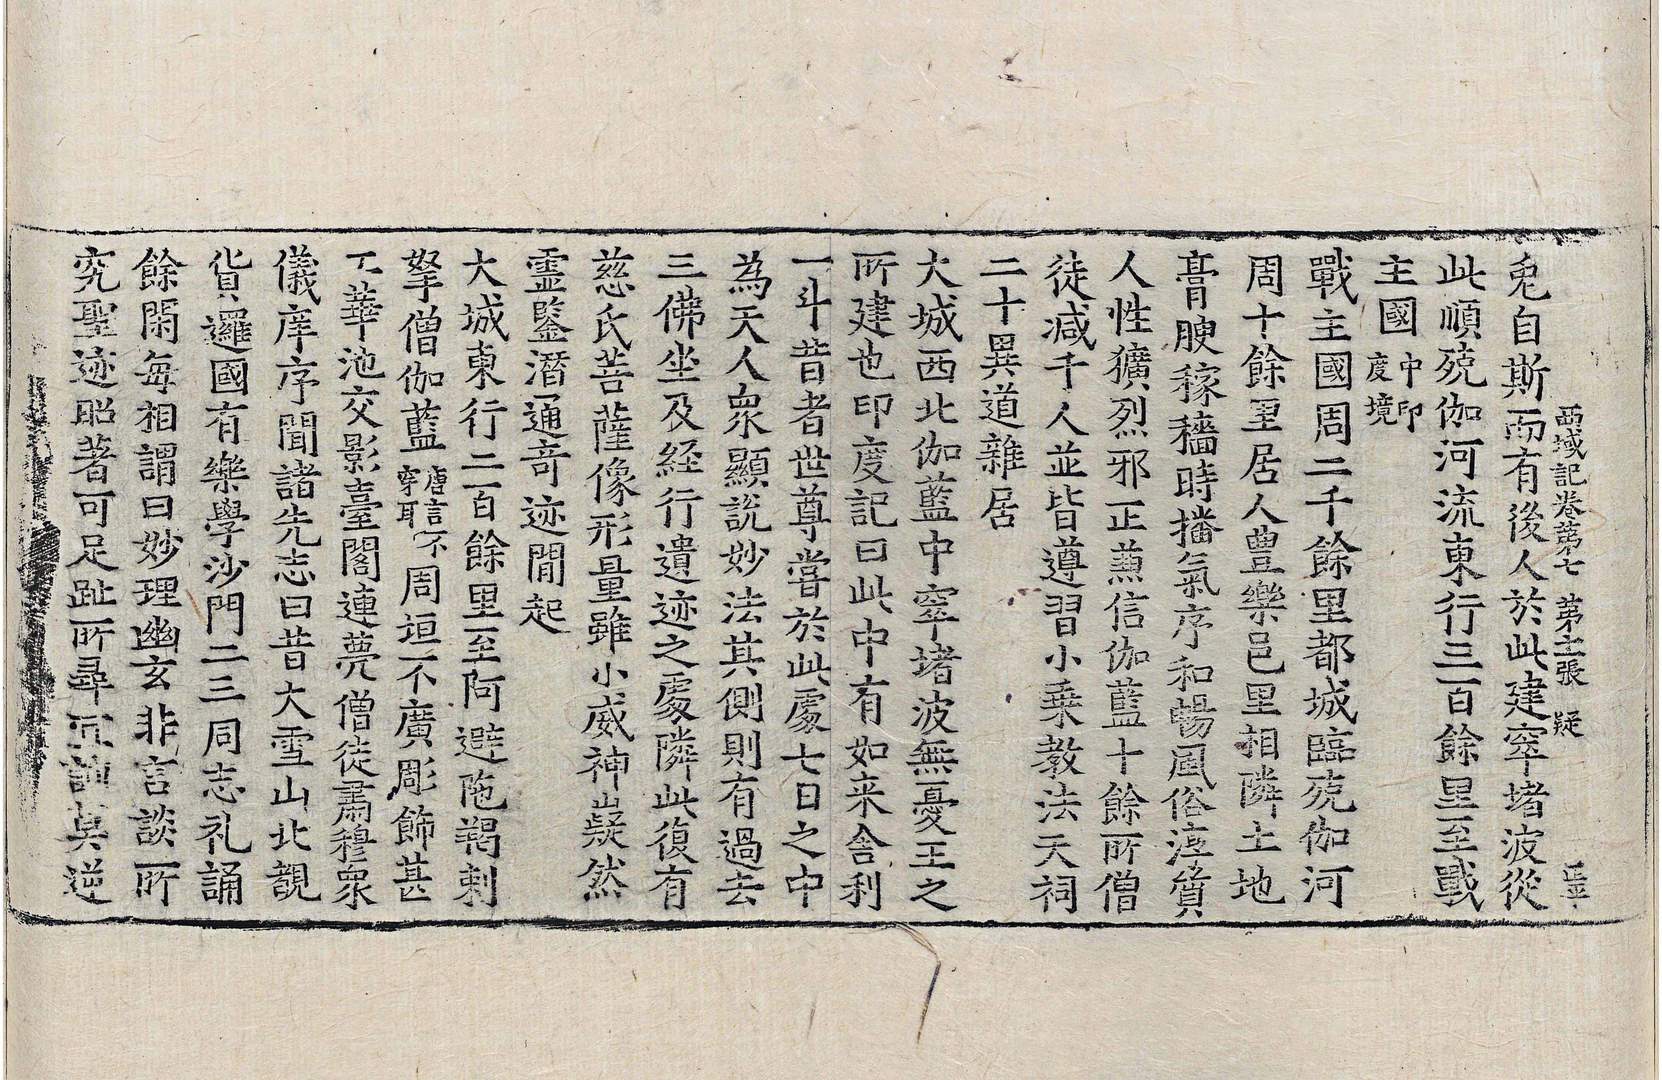 西域記卷第七　第十二張　疑
兎自斯而有後人於此建窣堵波從
此順殑伽河流東行三百餘里至戰
主國中印度境
戰主國周二千餘里都城臨殑伽河
周十餘里居人豊樂邑里相隣土地
膏腴稼穡時播氣序和暢風俗淳質
人性獷烈邪正蒹信伽藍十餘所僧
徒减千人並皆遵習小乗教法天祠
二十異道雜居
大城西北伽藍中窣堵波無憂王之
所建也印度記曰此中有如来舎利
一斗昔者世尊甞於此處七日之中
為天人衆顯說妙法其側則有過去
三佛坐及経行遺迹之處隣此復有
慈氏菩薩像形量雖小威神嶷然
靈鑒潜通竒迹間起
大城東行二百餘里至阿避陁羯剌
拏僧伽藍唐言不穿耳周垣不廣彫飾甚
工華池交影臺閣連甍僧徒肅穆衆
儀庠序聞諸先志曰昔大雪山北覩
貨邏國有樂學沙門二三同志礼誦
餘閑每相謂曰妙理幽玄非言談所
究聖迹昭著可足趾所尋宜詢莫逆